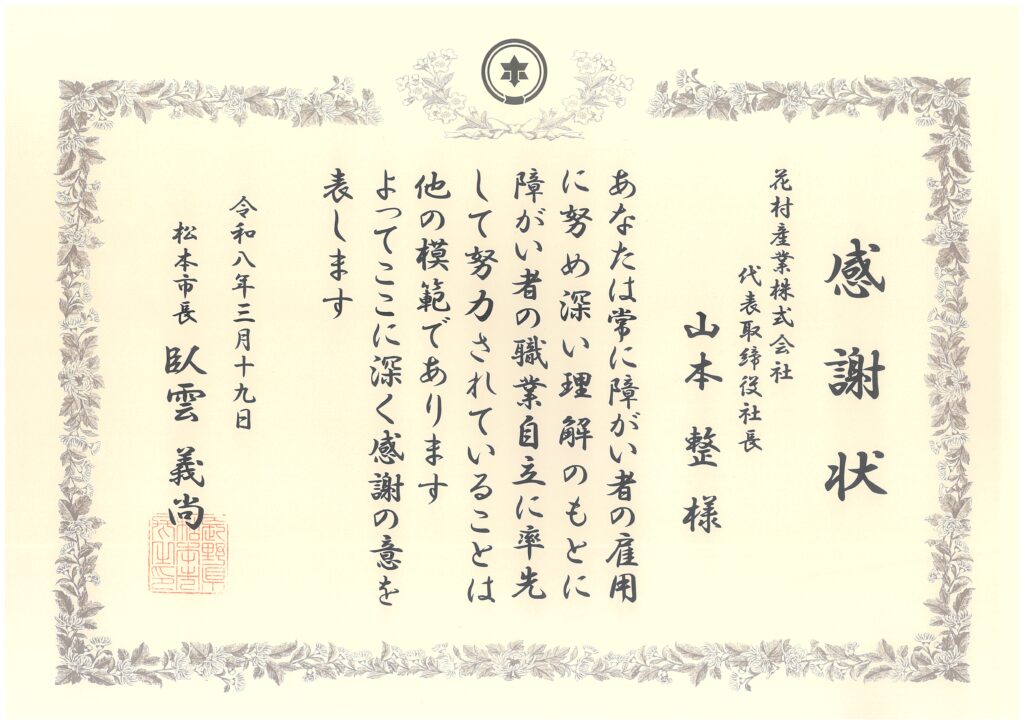 感謝状
花村産業株式会社
代表取締役社長
山本整様
あなたは常に障がい者の雇用
に努め深い理解のもとに
障がい者の職業自立に率先
して努力されていることは
他の模範であります
よってここに深く感謝の意を
表します
令和八年三月十九日
松本市長 臥雲義尚